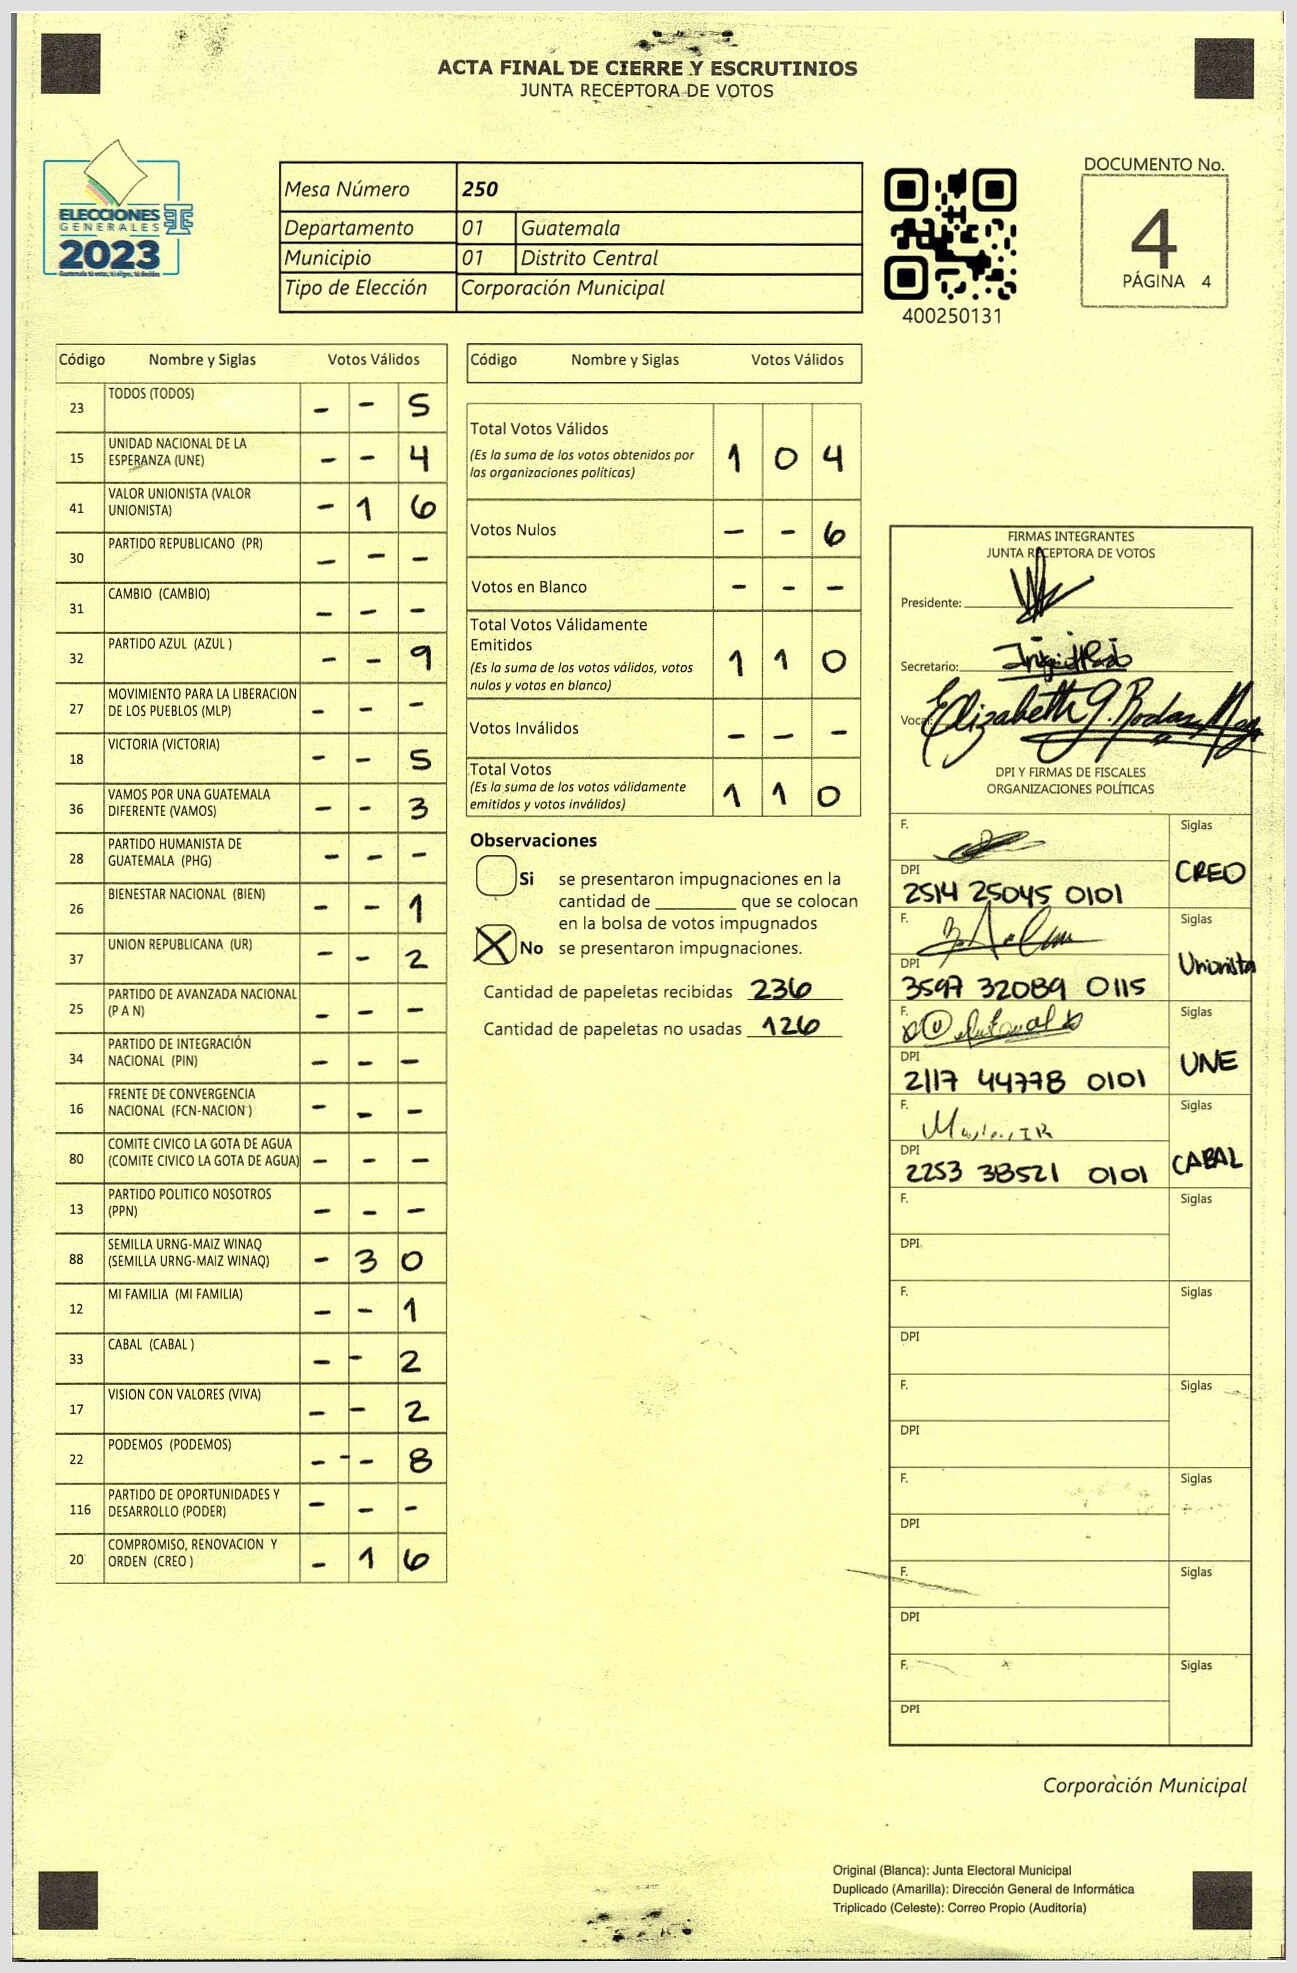 ACTA FINAL DE CIERRE Y ESCRUTINIOS
JUNTA RECEPTORA DE VOTOS
ELECCIONES
GENERALES
2023
Mesa Número 250
Departamento 01 Guatemala
Municipio 01 Distrito Central
Tipo de Elección Corporación Municipal
400250131
DOCUMENTO No.
4
PÁGINA 4
Código Nombre y Siglas Votos Válidos
23 TODOS (TODOS) - - 5
15 UNIDAD NACIONAL DE LA
ESPERANZA (UNE) - - 4
41 VALOR UNIONISTA (VALOR
UNIONISTA) - 1 6
30 PARTIDO REPUBLICANO (PR) - - -
31 CAMBIO (CAMBIO) - - -
32 PARTIDO AZUL (AZUL ) - - 9
27 MOVIMIENTO PARA LA LIBERACION
DE LOS PUEBLOS (MLP) - - -
18 VICTORIA (VICTORIA) - - 5
36 VAMOS POR UNA GUATEMALA
DIFERENTE (VAMOS) - - 3
28 PARTIDO HUMANISTA DE
GUATEMALA (PHG) - - -
26 BIENESTAR NACIONAL (BIEN) - - 1
37 UNION REPUBLICANA (UR) - - 2
25 PARTIDO DE AVANZADA NACIONAL
(P A N) - - -
34 PARTIDO DE INTEGRACIÓN
NACIONAL (PIN) - - -
16 FRENTE DE CONVERGENCIA
NACIONAL (FCN-NACION) - - -
80 COMITE CIVICO LA GOTA DE AGUA
(COMITE CIVICO LA GOTA DE AGUA) - - -
13 PARTIDO POLITICO NOSOTROS
(PPN) - - -
88 SEMILLA URNG-MAIZ WINAQ
(SEMILLA URNG-MAIZ WINAQ) - 3 0
12 MI FAMILIA (MI FAMILIA) - - 1
33 CABAL (CABAL ) - - 2
17 VISION CON VALORES (VIVA) - - 2
22 PODEMOS (PODEMOS) - - 8
116 PARTIDO DE OPORTUNIDADES Y
DESARROLLO (PODER) - - -
20 COMPROMISO, RENOVACION Y
ORDEN (CREO ) - 1 6
Código Nombre y Siglas Votos Válidos
Total Votos Válidos
(Es la suma de los votos obtenidos por
las organizaciones políticas) 1 0 4
Votos Nulos - - 6
Votos en Blanco - - -
Total Votos Válidamente
Emitidos
(Es la suma de los votos válidos, votos
nulos y votos en blanco) 1 1 0
Votos Inválidos - - -
Total Votos
(Es la suma de los votos válidamente
emitidos y votos inválidos) 1 1 0
Observaciones
Si se presentaron impugnaciones en la
cantidad de ________ que se colocan
en la bolsa de votos impugnados
X No se presentaron impugnaciones.
Cantidad de papeletas recibidas 236
Cantidad de papeletas no usadas 126
FIRMAS INTEGRANTES
JUNTA RECEPTORA DE VOTOS
Presidente:
Secretario:
Vocal: Elizabeth G. Rodas
DPI Y FIRMAS DE FISCALES
ORGANIZACIONES POLÍTICAS
F. Siglas
DPI CREO
2514 25045 0101
F. Siglas
DPI Unionista
3597 32089 0115
F. Siglas
DPI UNE
2117 44778 0101
F. Siglas
DPI CABAL
2253 38521 0101
F. Siglas
DPI
F. Siglas
DPI
F. Siglas
DPI
F. Siglas
DPI
F. Siglas
DPI
F. Siglas
DPI
Corporación Municipal
Original (Blanca): Junta Electoral Municipal
Duplicado (Amarilla): Dirección General de Informática
Triplicado (Celeste): Correo Propio (Auditoría)